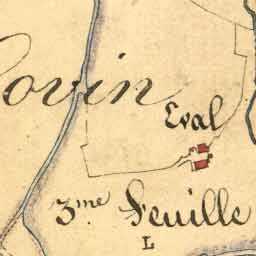 Rovin
Eval
3.me Feuille
L